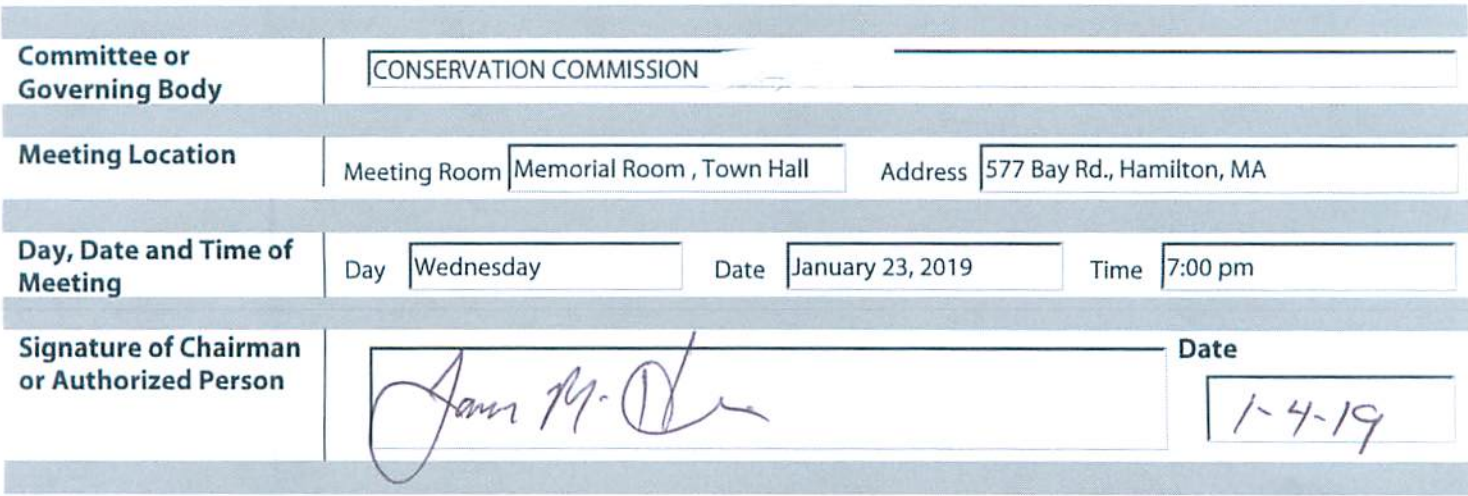 Committee or
Governing Body
CONSERVATION COMMISSION
Meeting Location
Meeting Room Memorial Room , Town Hall Address 577 Bay Rd., Hamilton, MA
Day, Date and Time of
Meeting
Day Wednesday Date January 23, 2019 Time 7:00 pm
Signature of Chairman
or Authorized Person
M.
Date
1-4-19